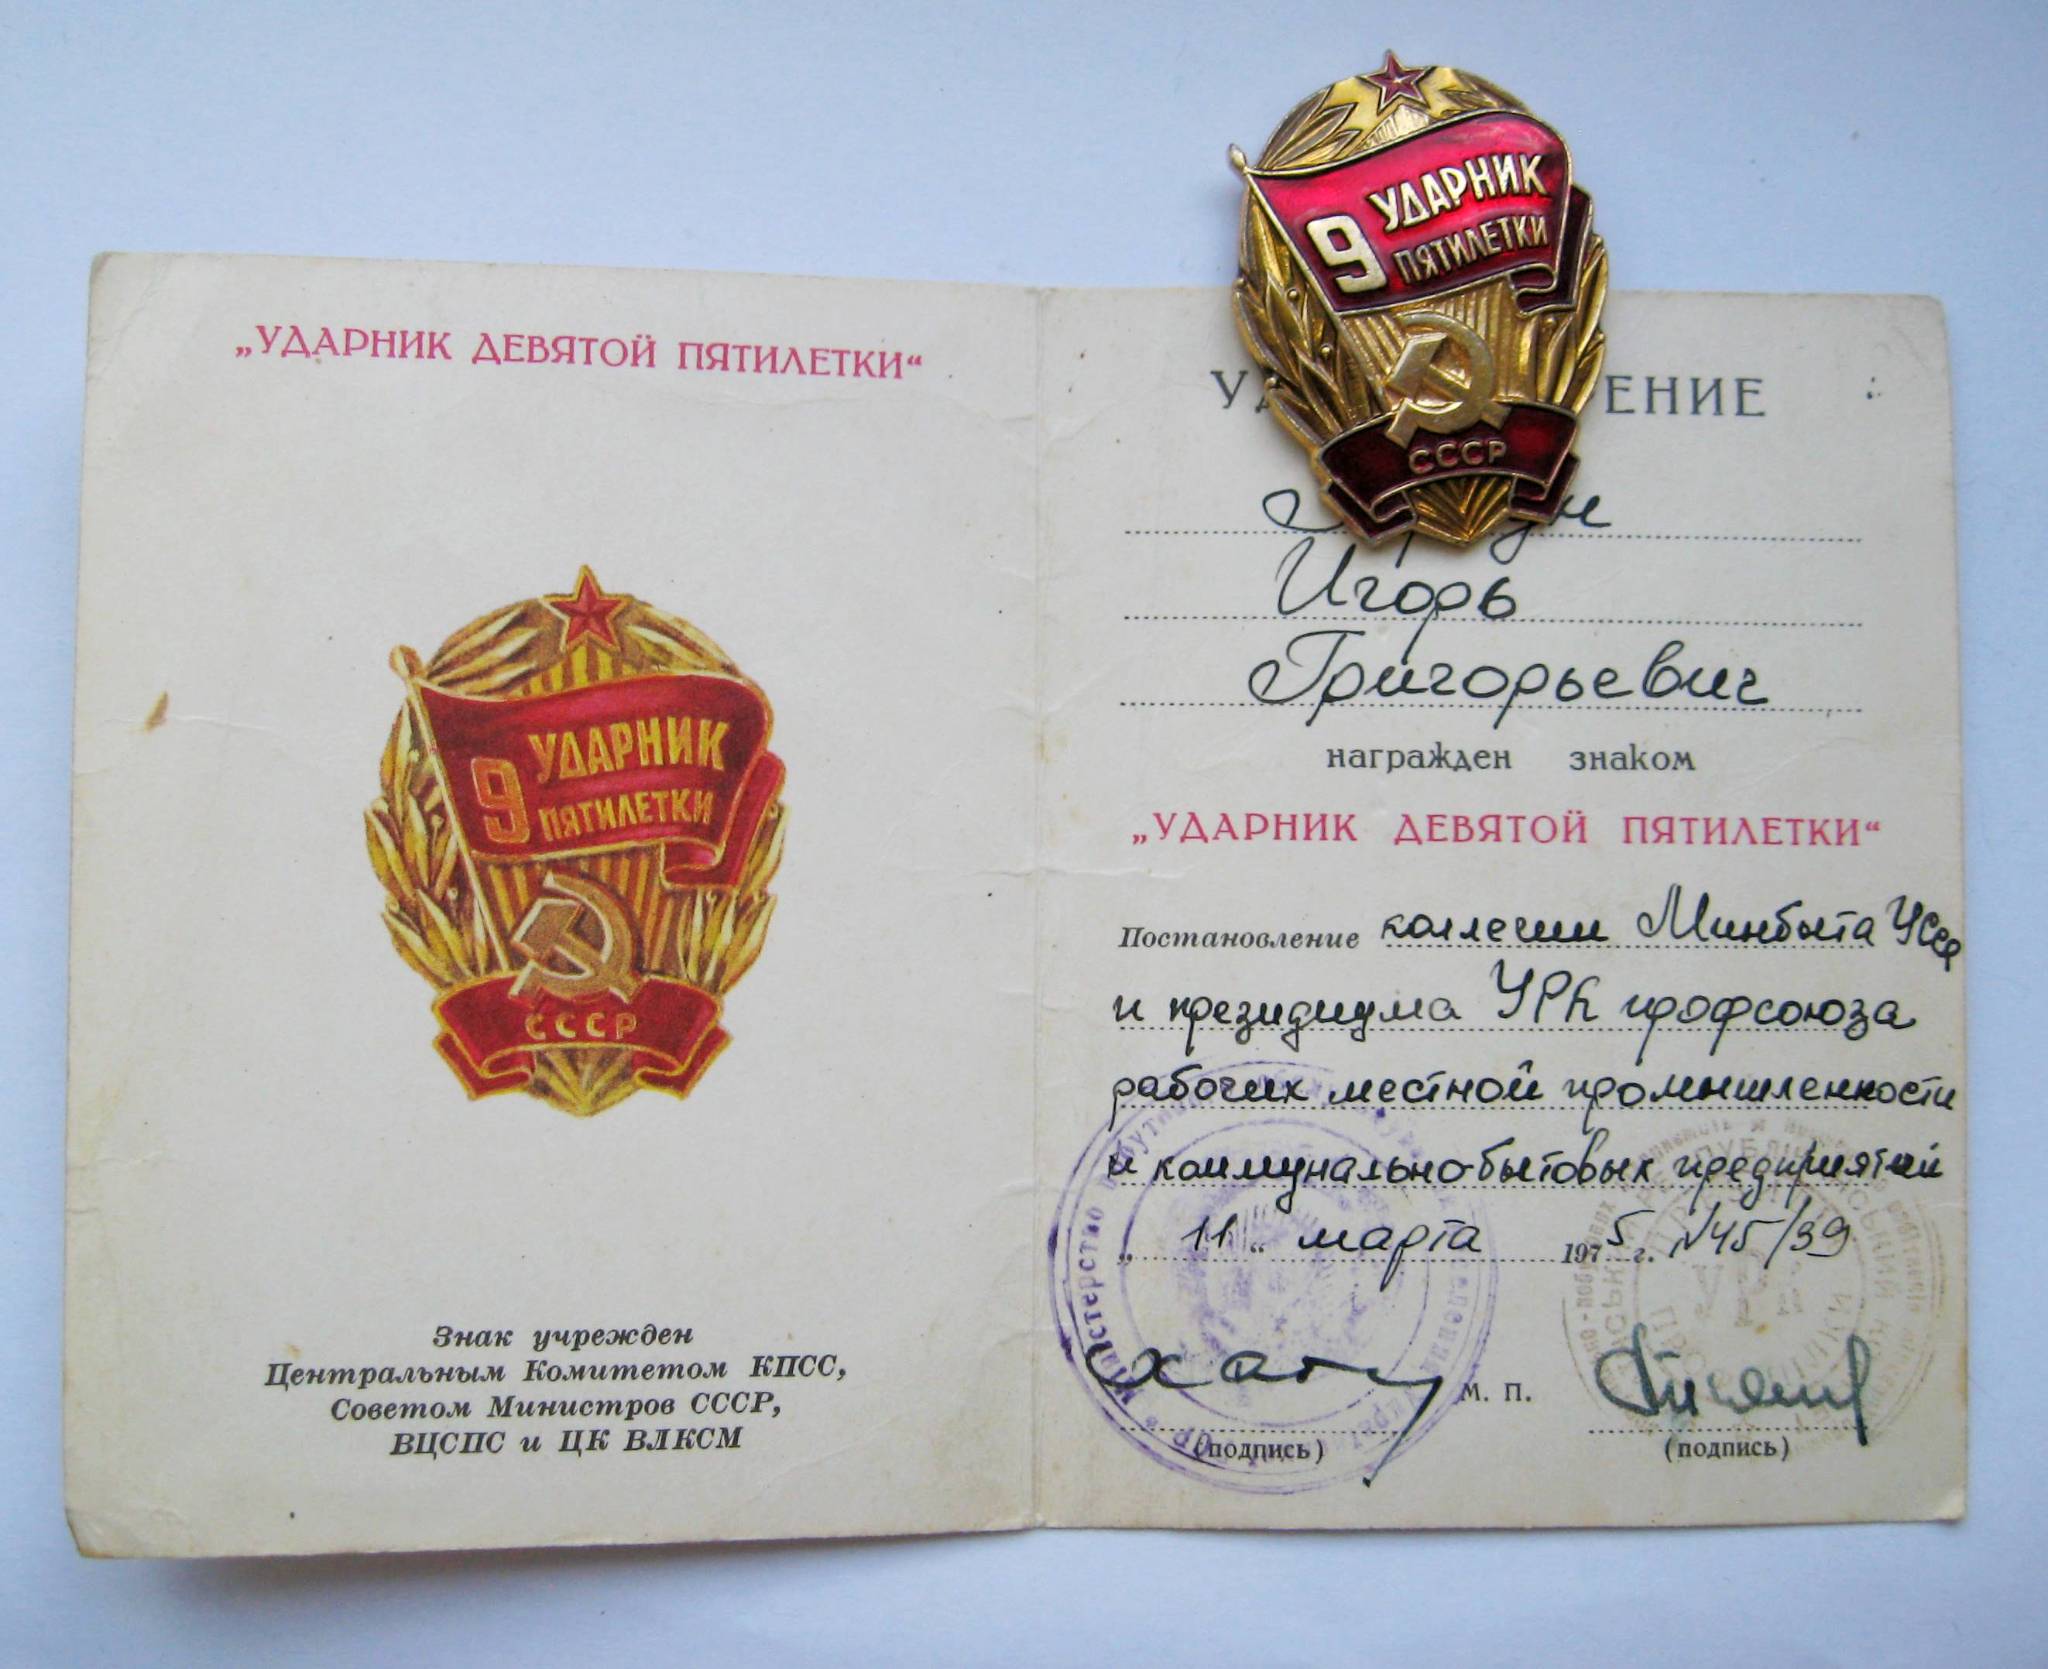 „УДАРНИК ДЕВЯТОЙ ПЯТИЛЕТКИ“
9 УДАРНИК
ПЯТИЛЕТКИ
СССР
Знак учрежден
Центральным Комитетом КПСС,
Советом Министров СССР,
ВЦСПС и ЦК ВЛКСМ
9 УДАРНИК
ПЯТИЛЕТКИ
СССР
Игорь
Григорьевич
награжден знаком
„УДАРНИК ДЕВЯТОЙ ПЯТИЛЕТКИ“
Постановление коллегии Минбыта УССР
и президиума УРК профсоюза
рабочих местной промышленности
и коммунально-бытовых предприятий
„11“ марта 1975 г. №45/39
М. П.
(подпись)
(подпись)